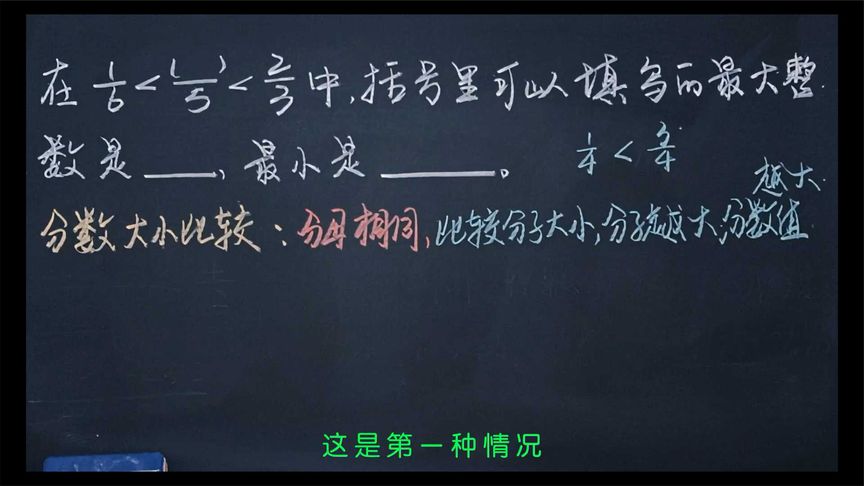 在 1/6 < ( )/5 < 2/3 中,括号里可以填写的最大整
数是____,最小是____。
1/4 < 3/4
分数大小比较:分母相同,比较分子大小,分子越大,分数值
越大.
这是第一种情况